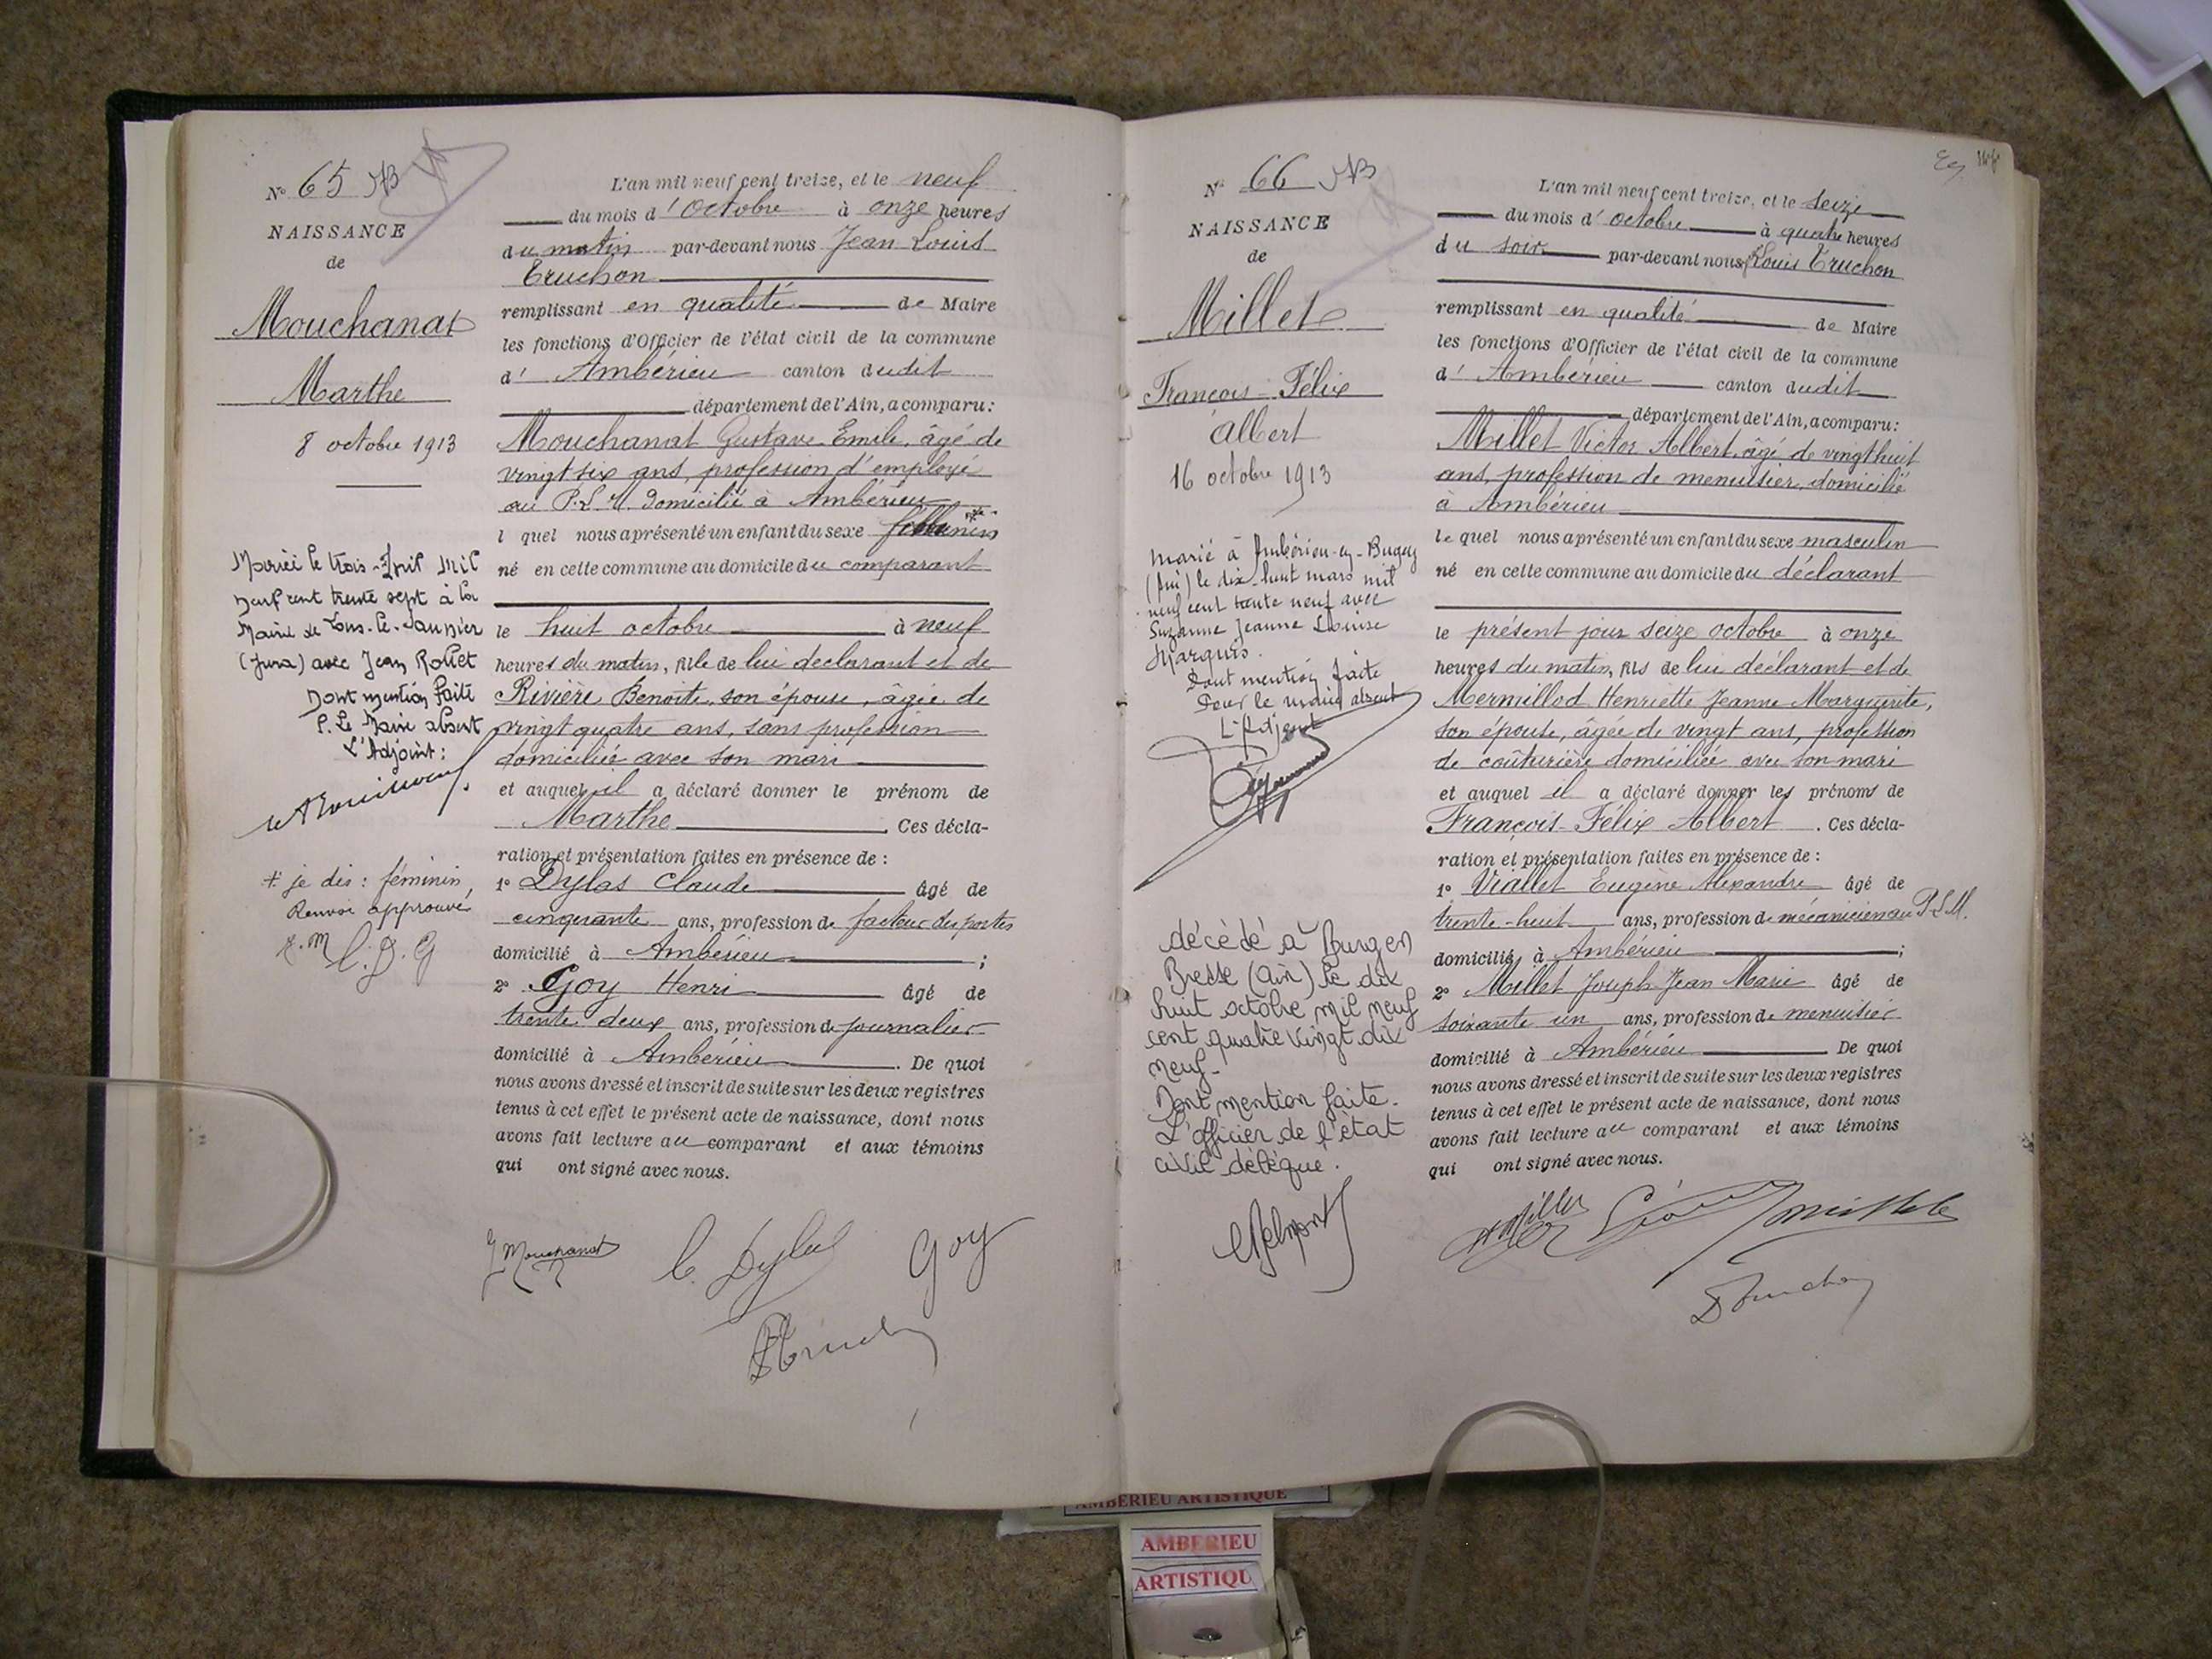 N° 65
NAISSANCE
de
Mouchanat
Marthe
8 octobre 1913
Mariée le trois Juil Mil
neuf cent trente sept à la
Mairie de Lons-le-Saunier
(Jura) avec Jean Rollet
Dont mention faite
P. Le Maire absent
L'Adjoint:
+ je dis : féminin,
Renvoi approuvé
C. D. G
L'an mil neuf cent treize, et le neuf
du mois d'octobre à onze heures
du matin par-devant nous Jean Louis
Truchon
remplissant en qualité de Maire
les fonctions d'Officier de l'état civil de la commune
d' Ambérieu canton dudit
département de l'Ain, a comparu:
Mouchanat Gustave Emile, âgé de
vingt six ans, profession d'employé
au P.L.M. domicilié à Ambérieu
l quel nous a présenté un enfant du sexe
né en cette commune au domicile du comparant
le huit octobre à neuf
heures du matin, fille de lui déclarant et de
Rivière Benoite, son épouse, âgée de
vingt quatre ans, sans profession
domiciliée avec son mari
et auquel il a déclaré donner le prénom de
Marthe. Ces décla-
ration et présentation faites en présence de :
1° Dylas Claude âgé de
cinquante ans, profession de facteur des postes
domicilié à Ambérieu ;
2° Goy Henri âgé de
trente deux ans, profession de journalier
domicilié à Ambérieu. De quoi
nous avons dressé et inscrit de suite sur les deux registres
tenus à cet effet le présent acte de naissance, dont nous
avons fait lecture au comparant et aux témoins
qui ont signé avec nous.
Mouchanat C. Dylas Goy
N° 66
NAISSANCE
de
Millet
François-Félix
Albert
16 octobre 1913
marié à Ambérieu-en-Bugey
(Ain) le dix-huit mars mil
neuf cent trente neuf avec
Suzanne Jeanne Louise
Marquis.
Dont mention faite
Pour le maire absent
L'Adjoint
décédé à Bourg en
Bresse (Ain) le dix
huit octobre mil neuf
cent quatre vingt dix
neuf.
Dont mention faite.
L'officier de l'état
civil délégué.
L'an mil neuf cent treize, et le seize
du mois d'octobre à quatre heures
du soir par-devant nous Louis Truchon
remplissant en qualité de Maire
les fonctions d'Officier de l'état civil de la commune
d' Ambérieu canton dudit
département de l'Ain, a comparu:
Millet Victor Albert, âgé de vingt huit
ans, profession de menuisier, domicilié
à Ambérieu
le quel nous a présenté un enfant du sexe masculin
né en cette commune au domicile du déclarant
le présent jour seize octobre à onze
heures du matin, fils de lui déclarant et de
Mermillod Henriette Jeanne Marguerite,
son épouse, âgée de vingt ans, profession
de coûturière domiciliée avec son mari
et auquel il a déclaré donner les prénoms de
François-Félix Albert. Ces décla-
ration et présentation faites en présence de :
1° Viallet Eugène Alexandre âgé de
trente-huit ans, profession de mécanicien au P.L.M.
domicilié à Ambérieu ;
2° Millet Joseph Jean Marie âgé de
soixante un ans, profession de menuisier
domicilié à Ambérieu De quoi
nous avons dressé et inscrit de suite sur les deux registres
tenus à cet effet le présent acte de naissance, dont nous
avons fait lecture au comparant et aux témoins
qui ont signé avec nous.
AMBERIEU ARTISTIQUE
AMBERIEU
ARTISTIQU